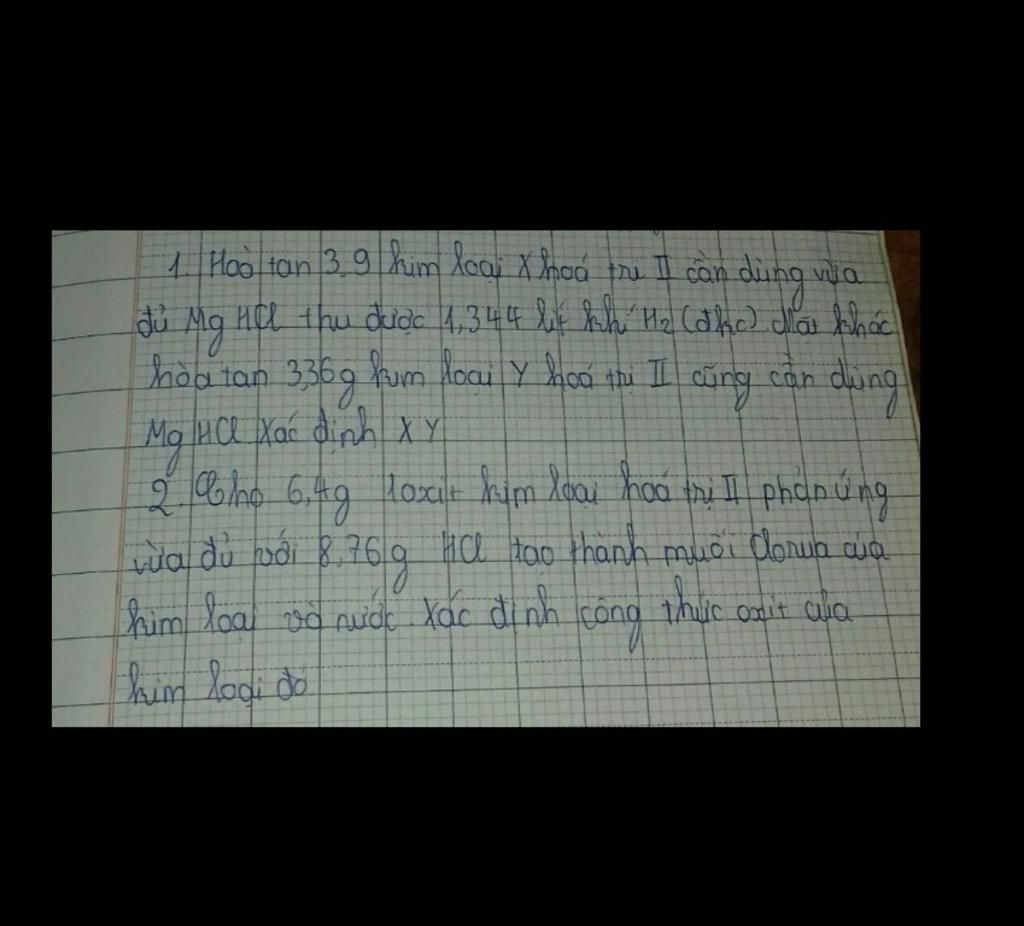 1. Hoà tan 3,9 kim loại X hoá trị II cần dùng vừa
đủ Mg HCl thu được 1,344 lít khí H₂ (đkc) Mặt khác
hòa tan 3,36g kim loại Y hoá trị II cũng cần dùng
Mg HCl Xác định X Y
2. Cho 6,4g 1 oxit kim loại hoá trị II phản ứng
vừa đủ với 8,76g HCl tạo thành muối clorua của
kim loại và nước Xác định công thức oxit của
kim loại đó